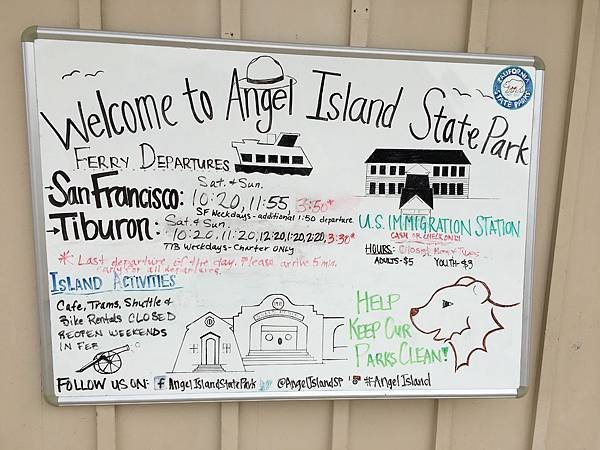 Welcome to Angel Island State Park
CALIFORNIA STATE PARKS
FERRY DEPARTURES
Sat. & Sun.
San Francisco: 10:20, 11:55 3:50*
SF Weekdays - additional 1:50 departure
Sat. & Sun.
Tiburon: 10:20, 11:20, 12:20, 1:20, 2:20, 3:30*
TIB Weekdays - Charter ONLY
* Last departure of the day. Please arrive 5 min.
early for all departures.
U.S. IMMIGRATION STATION
CASH OR CHECK ONLY!
HOURS: Closed Mon & Tues
ADULTS-$5 YOUTH-$3
ISLAND ACTIVITIES
Cafe, Trams, Shuttle &
Bike Rentals CLOSED
REOPEN WEEKENDS
IN FEB
HELP
KEEP OUR
PARKS CLEAN!
FOLLOW US ON: f AngelIslandStatePark @AngelIslandSP #AngelIsland